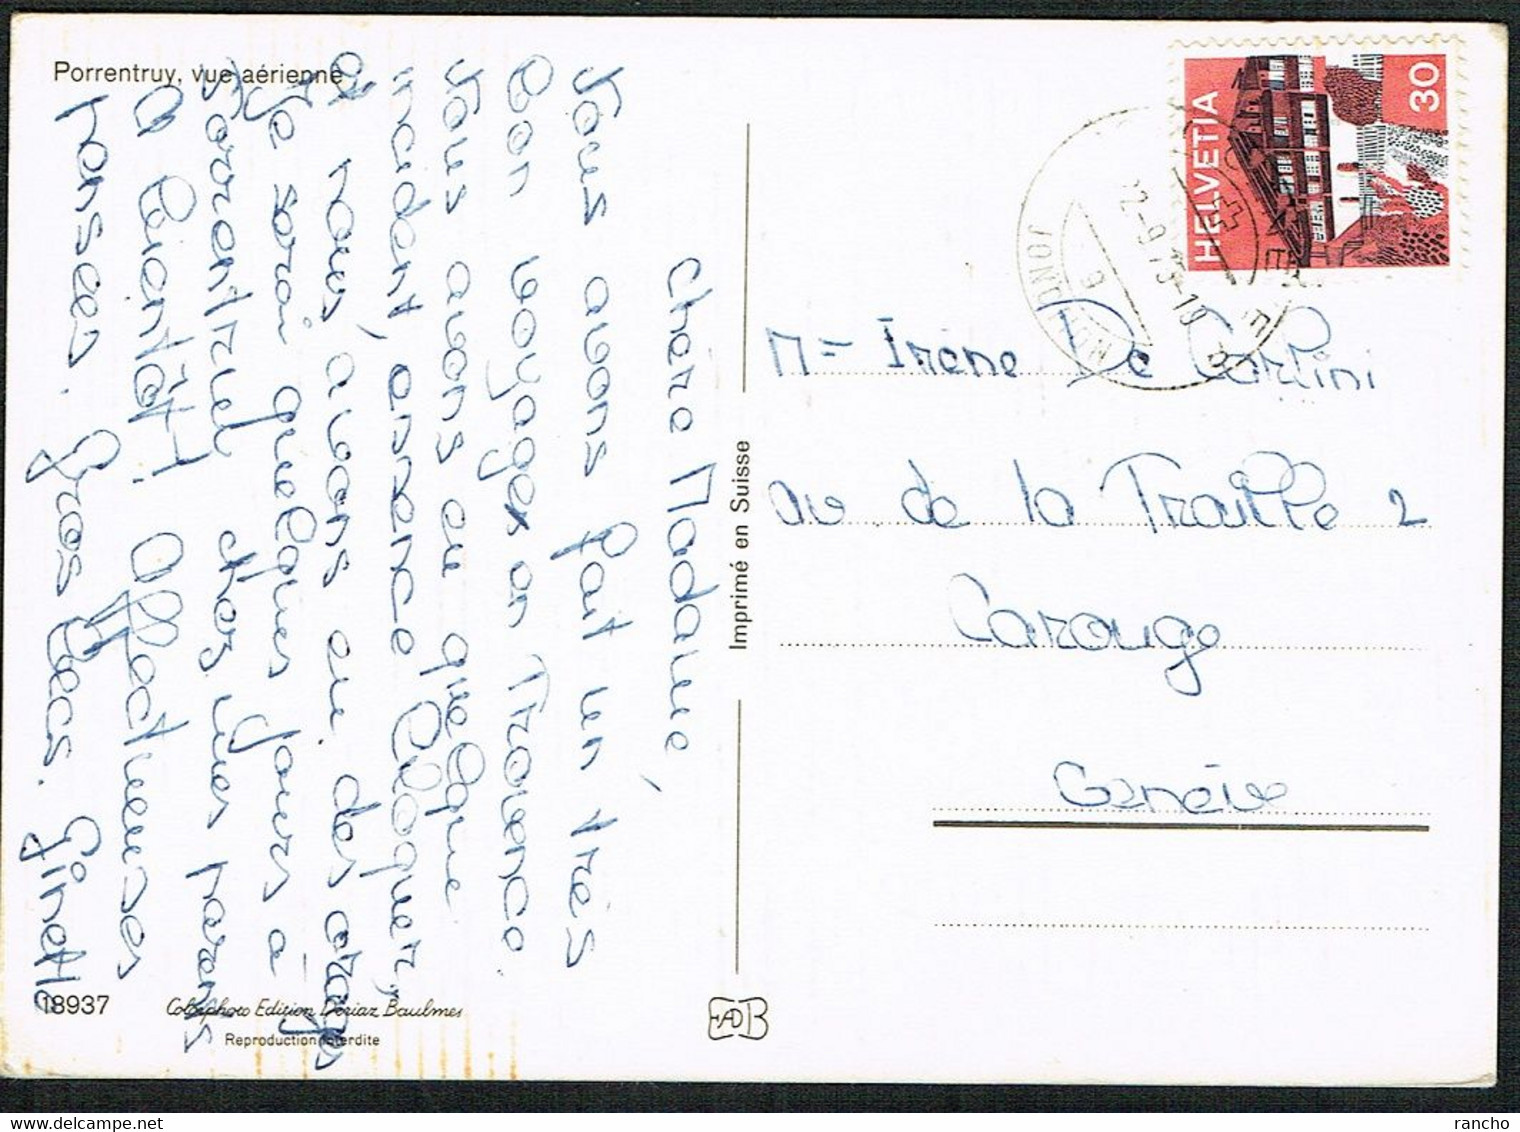 Porrentruy, vue aérienne
Chère Madame,
Nous avons fait un très
bon voyages en Provence
Nous avons eu quelque
incident, essence bloquer,
et nous avons eu des orages
Je serai quelques jours à
Porrentruy chez mes parens
A bientôt! Affectueuses
pensées. Gros becs. Ginette
18937
Colorphoto Edition Dériaz Baulmes
Reproduction interdite
Imprimé en Suisse
EADB
HELVETIA
30
2-9 73-19
M= Irène De Carlini
av de la Traille 2
Carouge
Genève
rancho